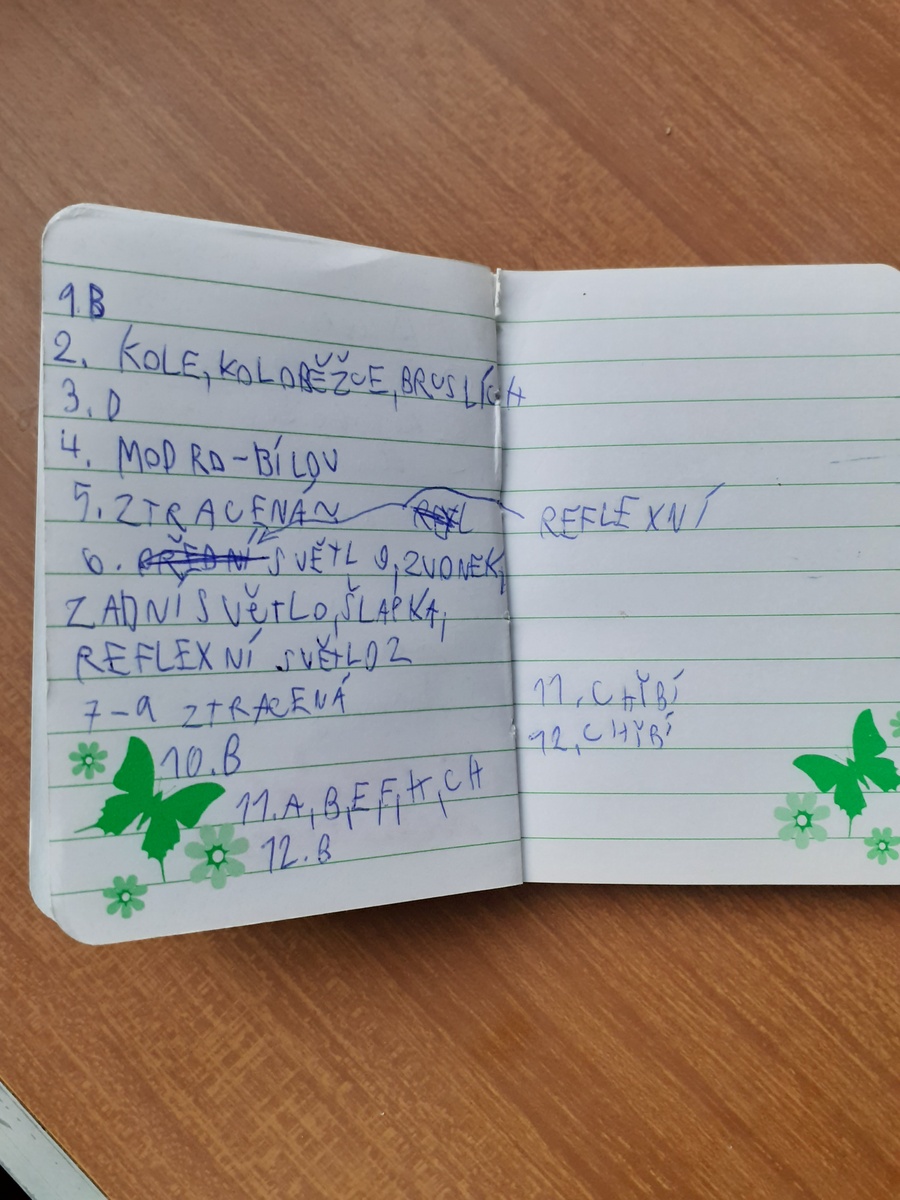 1.B
2. KOLE, KOLOBĚŽCE, BRUSLÍCH
3. D
4. MODRO-BÍLOU
5. ZTRACENÁ
REFLEXNÍ
6. PŘEDNÍ SVĚTLO, ZVONEK,
ZADNÍ SVĚTLO, ŠLAPKA,
REFLEXNÍ SVĚTLO 2
7-9 ZTRACENÁ
10.B
11.A,B,E,F,H,CH
12.B
11. CHYBÍ
12. CHYBÍ